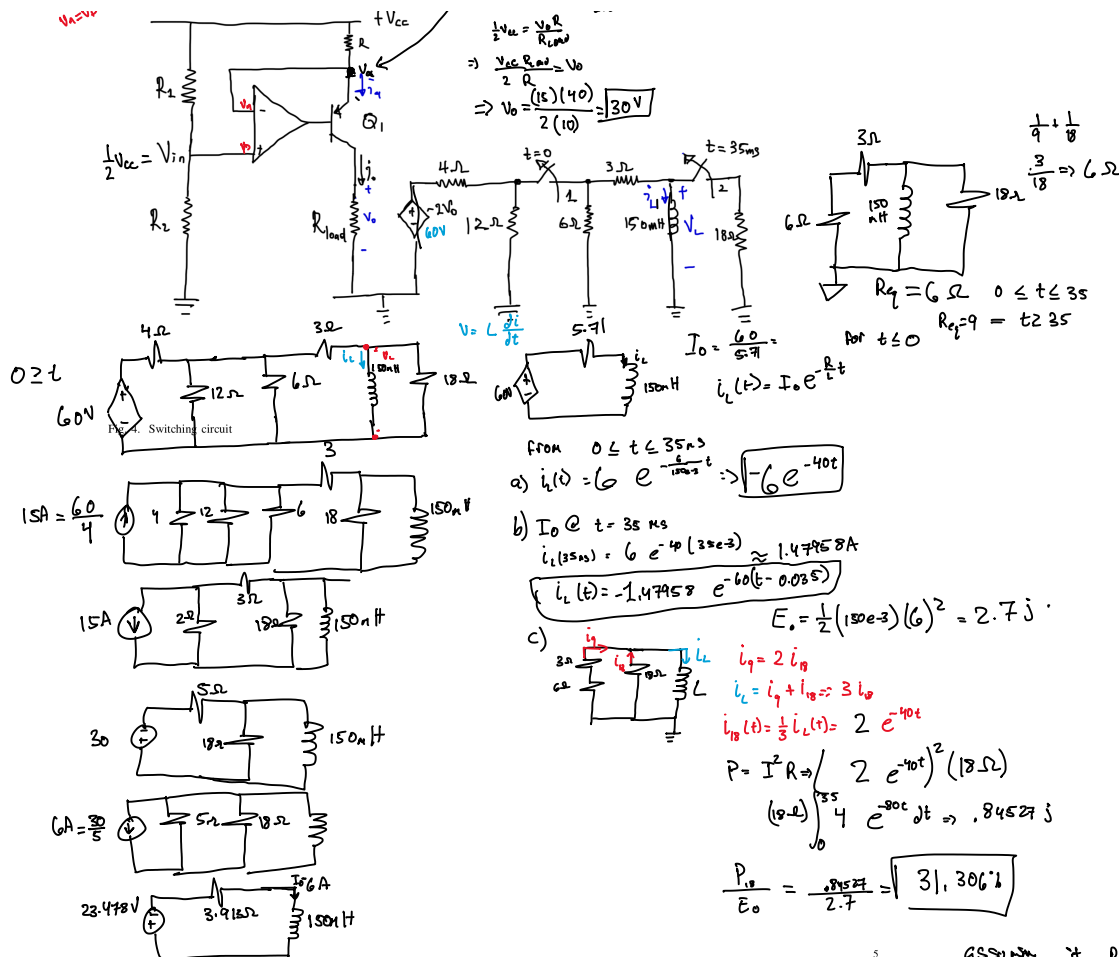 Va=V
+Vcc
R
Va
ia
R1
Va
-
Vb
+
Q1
½Vcc = Vin
R2
io
+
Vo
-
Rload
½Vcc = VoR / Rload
=> Vcc Rload / 2 R = Vo
=> Vo = (15)(40) / 2(10) = 30V
4Ω
t=0
1
3Ω
t=35ms
2
-2Vo
60V
12Ω
6Ω
iL
+
150mH
VL
-
18Ω
1/9 + 1/18
3/18 => 6Ω
3Ω
6Ω
150 mH
18Ω
Req = 6Ω 0 ≤ t ≤ 35
Req=9 = t≥35
for t≤0
V = L di/dt
0≥t
4Ω
3Ω
60V
12Ω
6Ω
iL
VL
150mH
18Ω
Fig. 4. Switching circuit
5.71
60V
iL
150mH
I0 = 60/5.71 =
iL(t) = I0 e^(-R/L t)
15A = 60/4
4
12
6
3
18
150mV
15A
2Ω
3Ω
18Ω
150mH
30
5Ω
18Ω
150mH
6A = 30/5
5Ω
18Ω
23.478V
3.913Ω
I0=6A
150mH
from 0 ≤ t ≤ 35ms
a) iL(t) = 6 e^(-6/150e-3 t) => -6e^(-40t)
b) I0 @ t = 35 ms
iL(35ms) = 6 e^(-40(35e-3)) ≈ 1.47958A
iL(t) = -1.47958 e^(-60(t-0.035))
E0 = ½(150e-3)(6)² = 2.7j
c)
i9
3Ω
6Ω
i18
18Ω
iL
L
i9 = 2 i18
iL = i9 + i18 => 3 i18
i18(t) = ⅓ iL(t) = 2 e^(-40t)
P = I²R => ( 2 e^(-40t))² (18Ω)
(18Ω) ∫₀³⁵ 4 e^(-80t) dt => .84527 j
P18 / E0 = .84527 / 2.7 = 31.306%
5
assume it